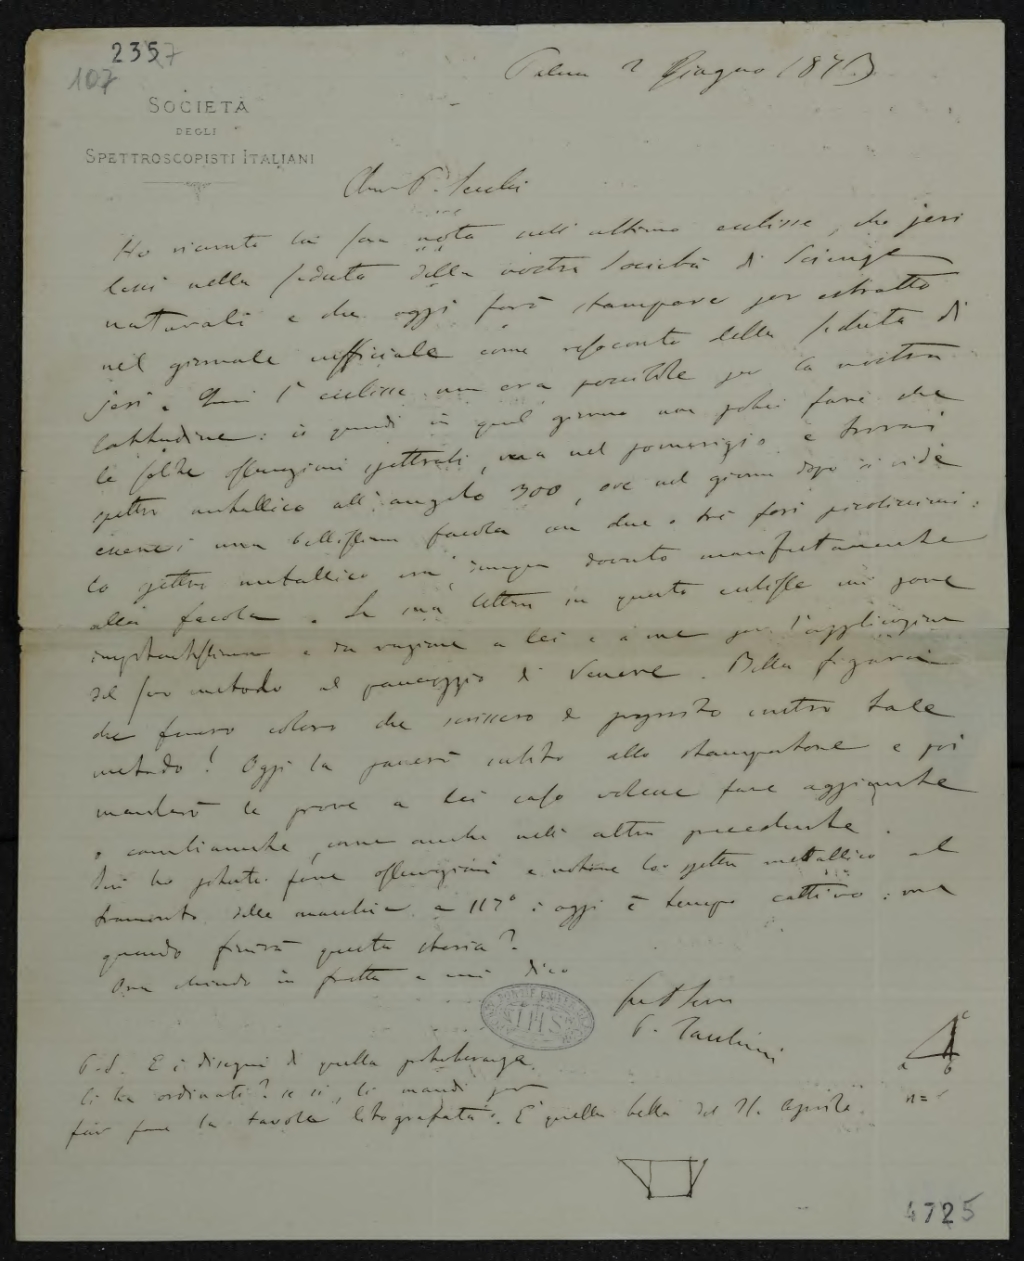 2357
107
SOCIETÀ
DEGLI
SPETTROSCOPISTI ITALIANI
Palermo 2 Giugno 1873
Chmo P. Secchi
Ho ricevuto la sua nota sull'ultimo eclisse, che jeri
lessi nella seduta della nostra Società di Scienze
naturali e che oggi farò stampare per estratto
nel giornale ufficiale come resoconto della seduta di
jeri. Qui l'eclisse non era possibile per la nostra
latitudine: io quindi in quel giorno non potei fare che
le solite osservazioni spettrali, ma nel pomeriggio e trovai
spettro metallico all'angolo 300, ove nel giorno dopo si vide
esserci una bellissima facola con due o tre fori piccolissimi:
lo spettro metallico era dunque dovuto manifestamente
alla facola. La sua lettera su questo eclisse mi pare
importantissima e da ragione a lei e a me per l'applicazione
del suo metodo al passaggio di Venere. Bella figura
che fanno coloro che scrissero di proposito contro tale
metodo! Oggi la passerò subito allo stampatore e poi
manderò le prove a lei caso volesse fare aggiunte
o cambiamenti, come anche nell'altra precedente.
Jeri ho potuto fare osservazioni e notare lo spettro metallico al
tramonto della macchia a 117°: oggi è tempo cattivo: ma
quando finirà questa storia?
Ora chiudo in fretta e mi dico
P. Tacchini
P.S. E i disegni di quella protuberanza
li ha ordinati? se sì, li mandi per
far fare la tavola litografata. È quella bella del 21 Aprile.
a
b
c
n=
IHS
4725